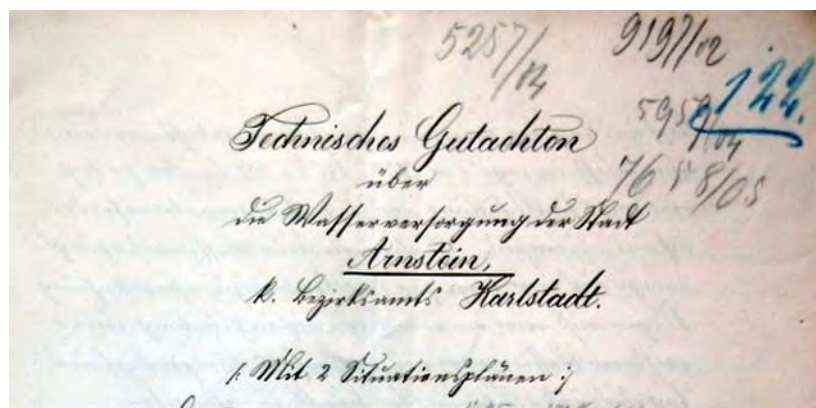 5257/04
9197/02
122.
5959/04
7658/05
Technisches Gutachten
über
die Wasserversorgung der Stadt
Arnstein,
k. Bezirksamts Karlstadt.
/: Mit 2 Situationsplänen :/